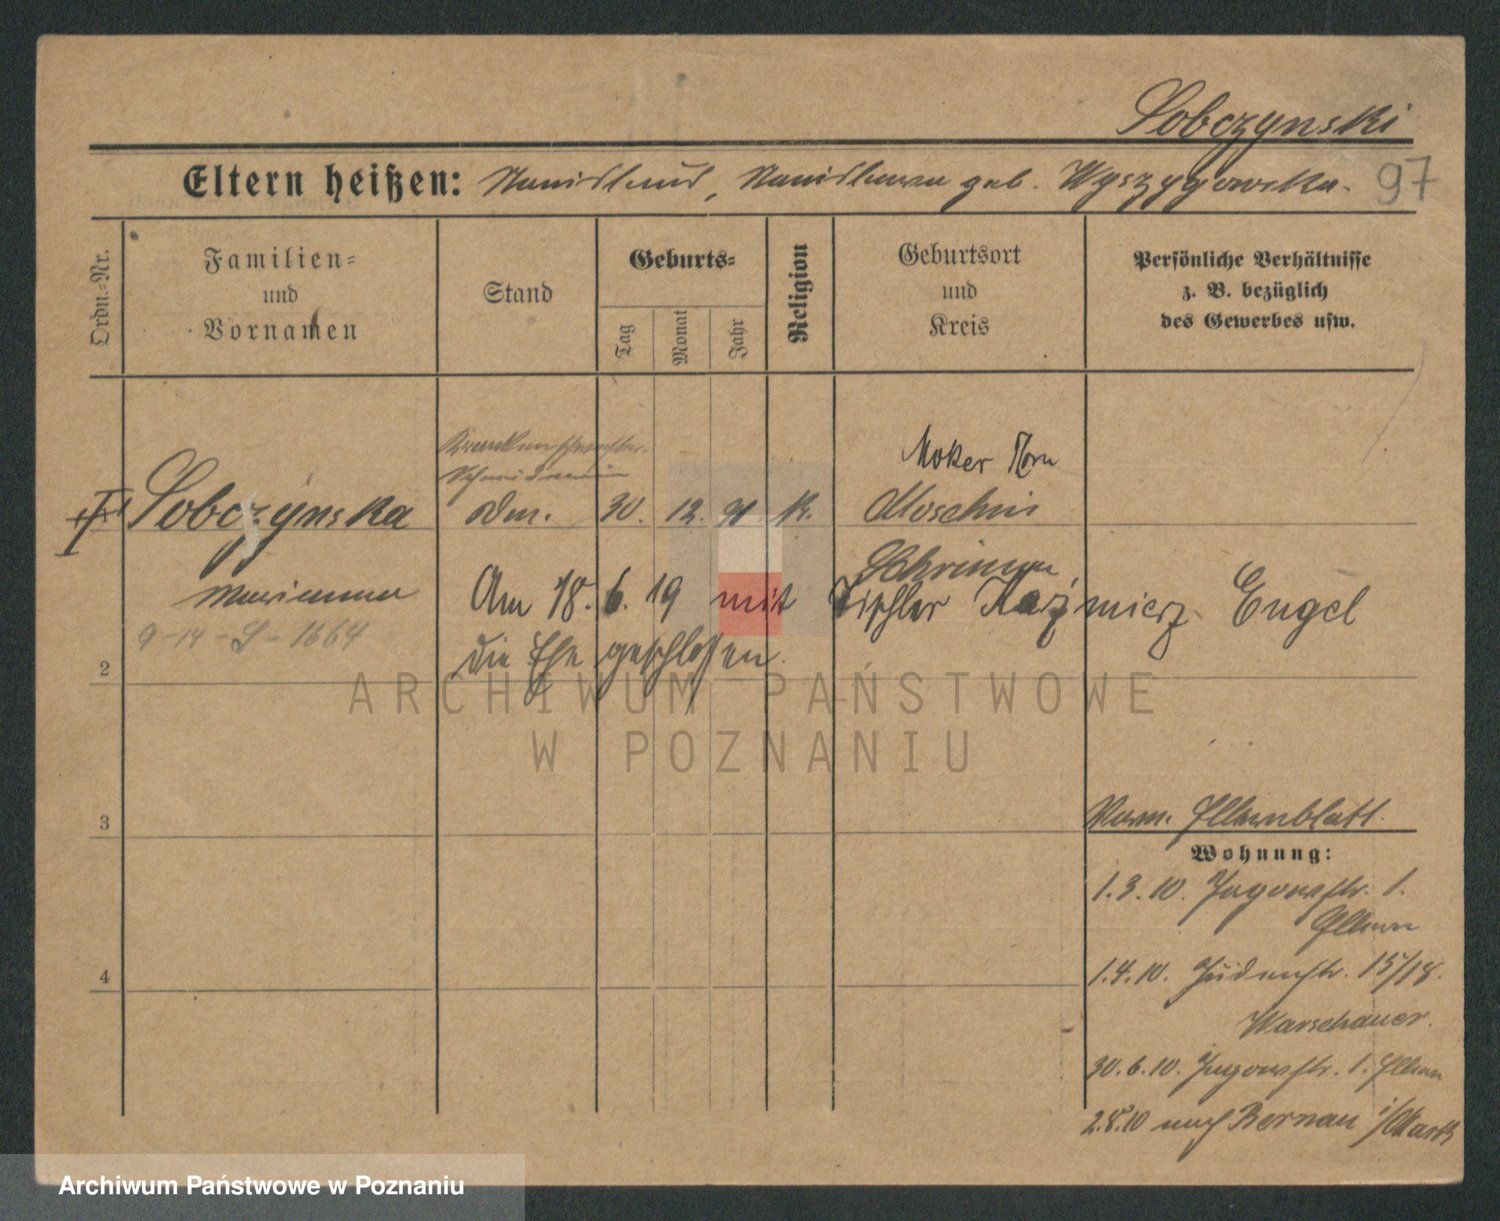 Sobczynski
Eltern heißen: Stanislaus, Stanislawa geb. Wyszygowska. 97
Ordn.-Nr.
Familien-
und
Vornamen
Stand
Geburts-
Tag
Monat
Jahr
Religion
Geburtsort
und
Kreis
Persönliche Verhältnisse
z. B. bezüglich
des Gewerbes usw.
Schneiderin
Moker
Sobczynska 30. 12. 91 k. Moschin
Schrimm
Marianna
Am 18. 6. 19 mit Tischler Kazimierz Engel
9-14-S-1664
die Ehe geschlossen.
2
ARCHIWUM PAŃSTWOWE
W POZNANIU
3
Elternblatt.
Wohnung:
1.3.10. Jagowstr. 1.
Eltern
4
1.4.10. Judenstr. 15/18.
Warschauer.
30.6.10. Jagowstr. 1. Eltern
2.8.10 nach Bernau i/Mark
Archiwum Państwowe w Poznaniu